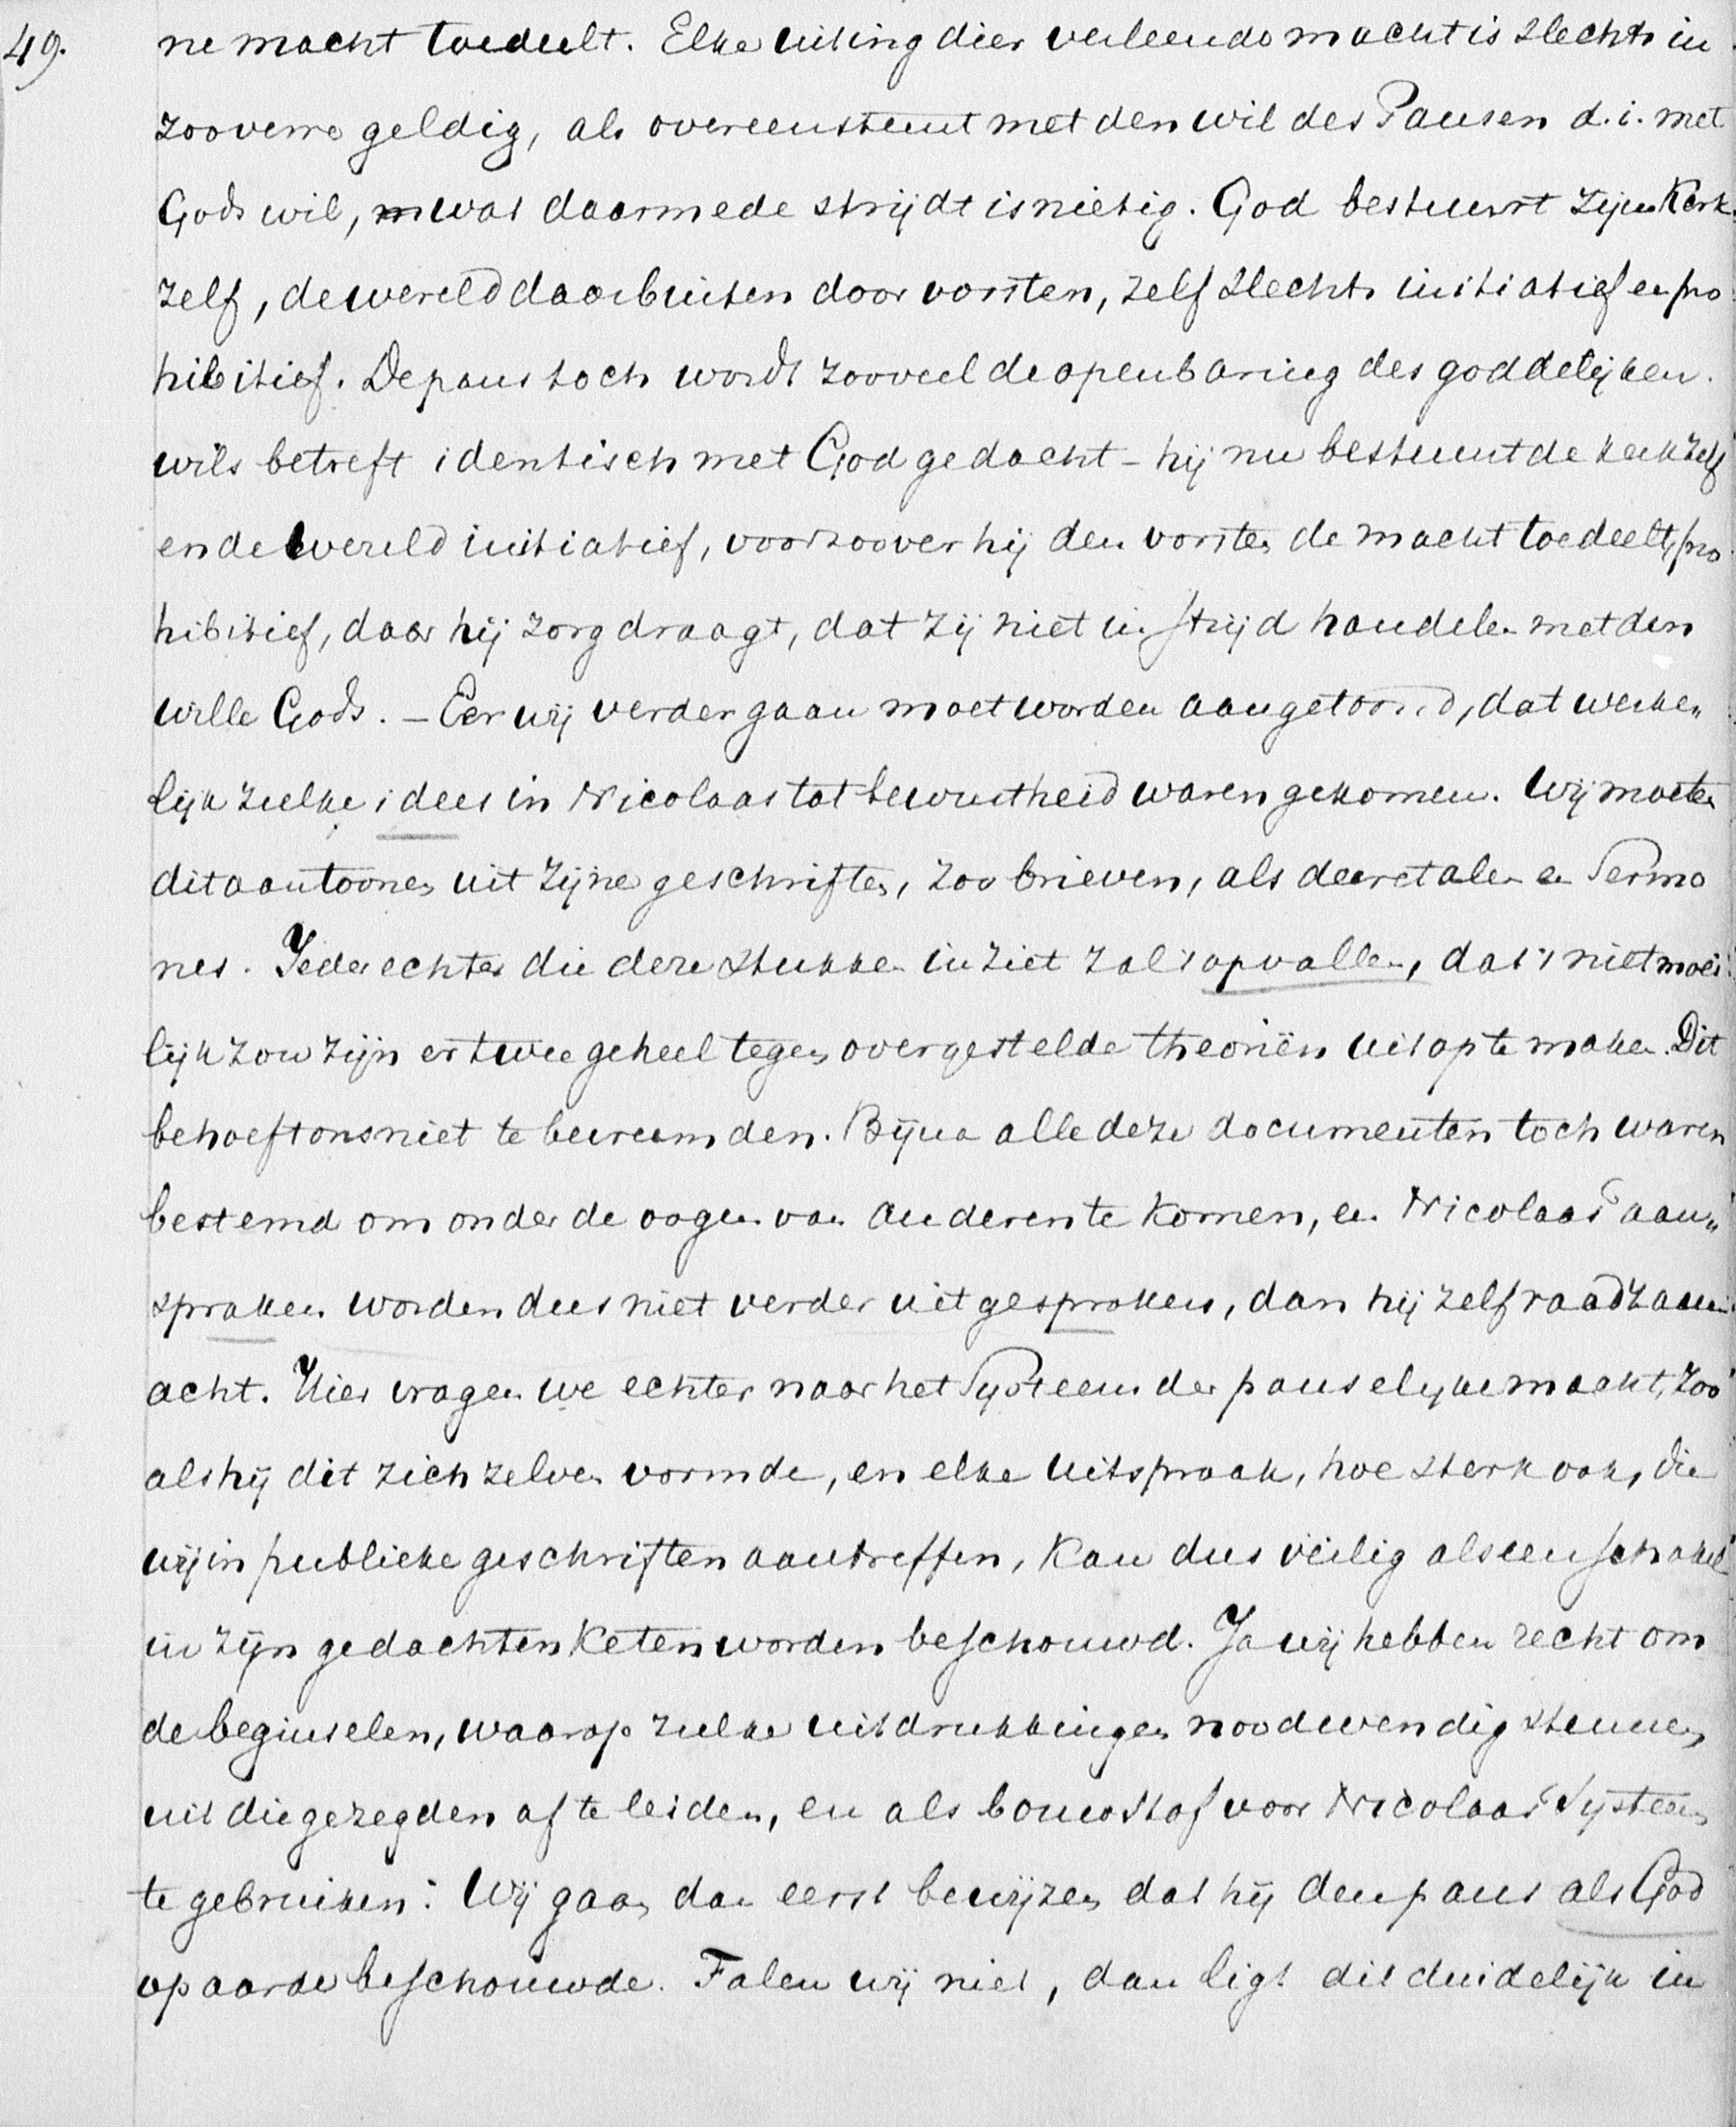 49.
ne macht toedeelt. Elke uiting dier verleende macht is slechts in
zooverre geldig, als overeenstemt met den wil des Pausen d. i. met
Gods wil, wat daarmede strijdt is nietig. God bestuurt zijn Kerk
zelf, de wereld daarbuiten door vorsten, zelf slechts initiatief en pro
hibitief. De paus toch wordt zooveel de openbaring des goddelijken
wils betreft identisch met God gedacht – hij nu bestuurt de kerk zelf
en de wereld initiatief, voorzoover hij den vorsten de macht toedeelt, pro
hibitief, daar hij zorg draagt, dat zij niet in strijd handelen met den
wille Gods. – Eer wij verder gaan moet worden aangetoond, dat werke„
lijk zulke idees in Nicolaas tot bewustheid waren gekomen. Wij moeten
dit aantoonen uit zijne geschriften, zoo brieven, als decretalen en Sermo
nes. Ieder echter die deze stukken inziet zal 't opvallen, dat 't niet moei
lijk zou zijn er twee geheel tegenovergestelde theoriën uit op te maken. Dit
behoeft ons niet te bevreemden. Bijna alle deze documenten toch waren
bestemd om onder de oogen van anderen te komen, en Nicolaas' aan„
spraken worden dus niet verder uitgesproken, dan hij zelf raadzaam
acht. Hier vragen we echter naar het Systeem der pauselijke macht, zoo
als hij dit zich zelven vormde, en elke uitspraak, hoe sterk ook, die
wij in publieke geschriften aantreffen, kan dus veilig als een schakel
in zijn gedachten keten worden beschouwd. Ja wij hebben recht om
de beginselen, waarop zulke uitdrukkingen noodwendig steunen,
uit die gezegden af te leiden, en als bouwstof voor Nicolaas' Systeem
te gebruiken. Wij gaan dan eerst bewijzen dat hij den paus als God
op aarde beschouwde. Falen wij niet, dan ligt dit duidelijk in